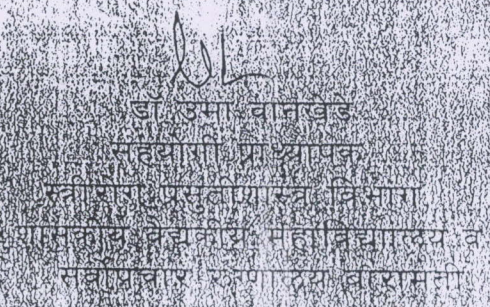 डॉ. उमा वानखेडे
सहयोगी प्राध्यापक
स्त्रीरोग प्रसुतीशास्त्र विभाग
शासकीय वैद्यकीय महाविद्यालय व
सर्वोपचार रुग्णालय बारामती